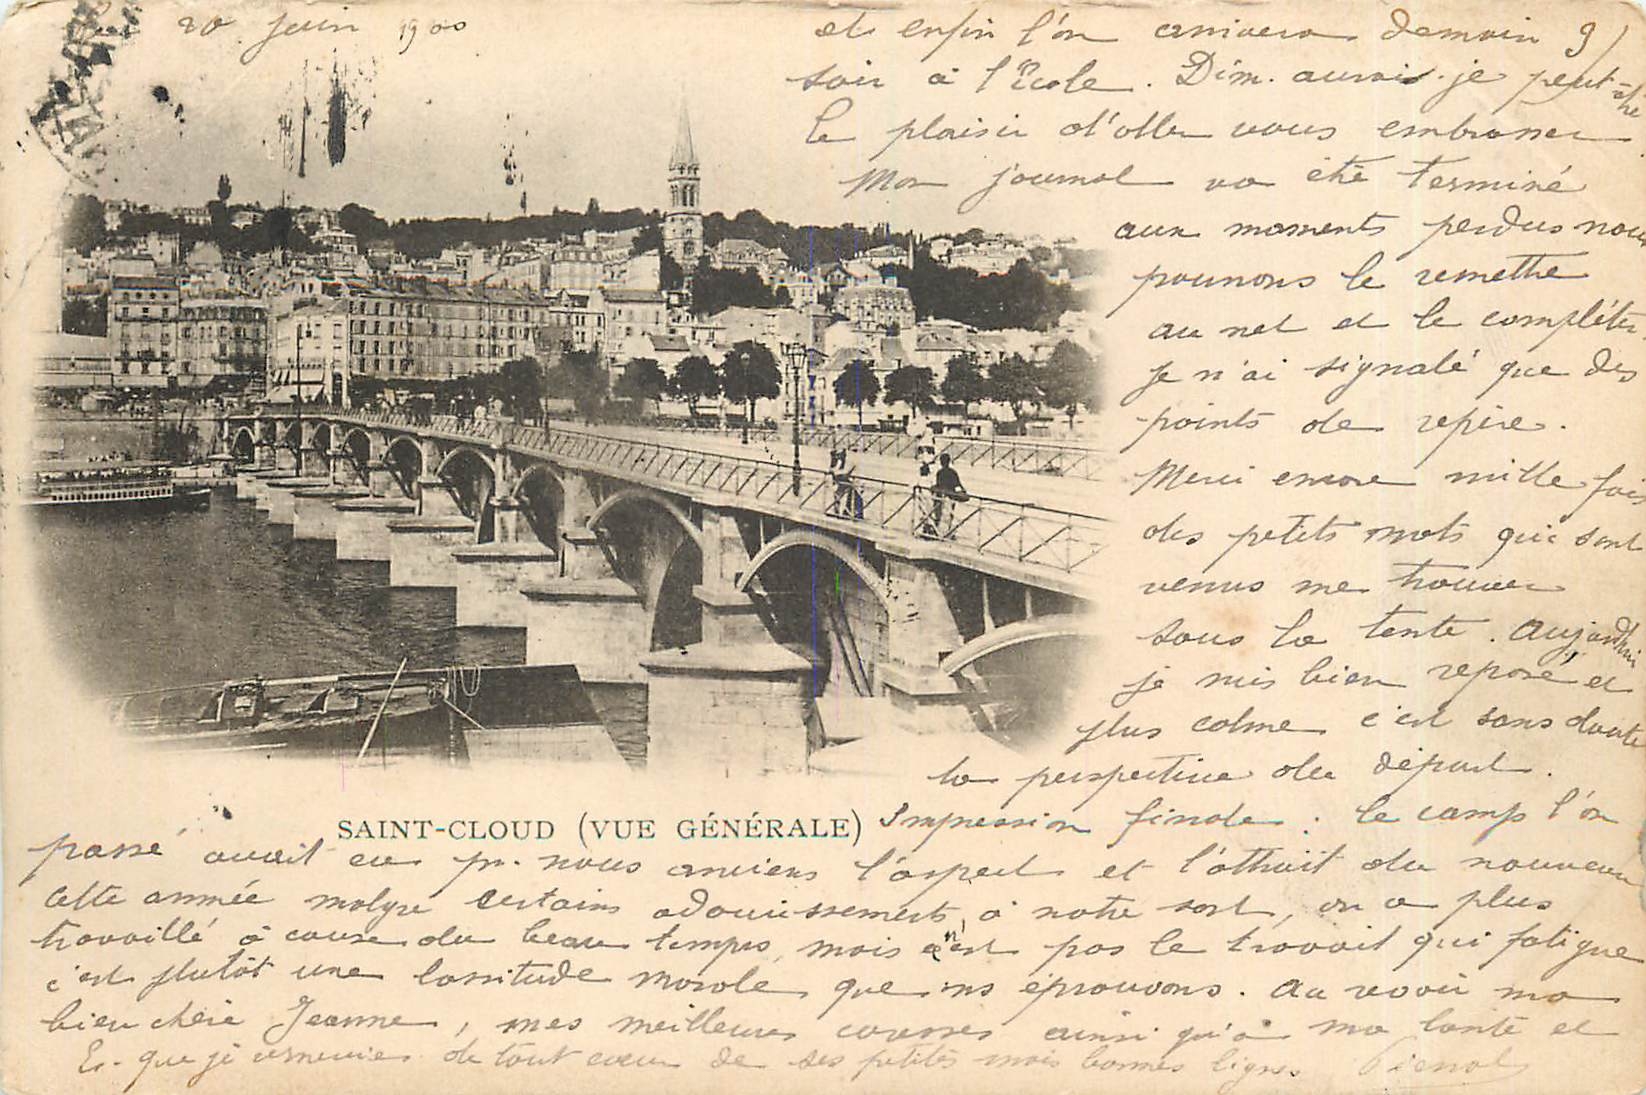 20 juin 1900
et enfin l'on arrivera demain 9
soir à l'Ecole. Dim. aurai-je peut-être
le plaisir d'aller vous embrasser
Mon journal va être terminé
aux moments perdus nous
pourrons le remettre
au net et le compléter.
je n'ai signalé que des
points de repère.
Merci encore mille fois
des petits mots qui sont
venus me trouver
sous la tente. Aujourd'hui
je suis bien reposé et
plus calme c'est sans doute
la perspective du départ.
SAINT-CLOUD (VUE GÉNÉRALE)
Impression finale : le camp l'an
passé avait eu pr. nous anciens l'aspect et l'attrait du nouveau
cette année malgré certains adoucissements à notre sort, on a plus
travaillé à cause du beau temps, mais ce n'est pas le travail qui fatigue
c'est plutôt une lassitude morale que ns éprouvons. Au revoir ma
bien chère Jeanne, mes meilleures caresses ainsi qu'à ma tante et
que je remercie de tout cœur de ses petites mais bonnes lignes